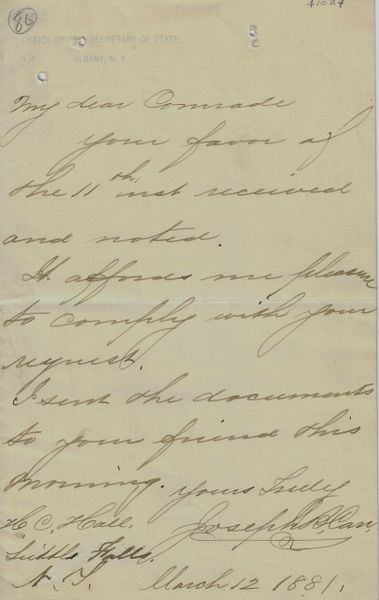 86
41024
OFFICE OF THE SECRETARY OF STATE,
ALBANY, N.Y.
My dear Comrade
your favor of
the 11th inst received
and noted.
It affords me pleasure
to comply with your
request.
I sent the documents
to your friend this
morning. yours Truly
H. C. Hall. Joseph B. Carr
Little Falls.
N. Y. March 12 1881.